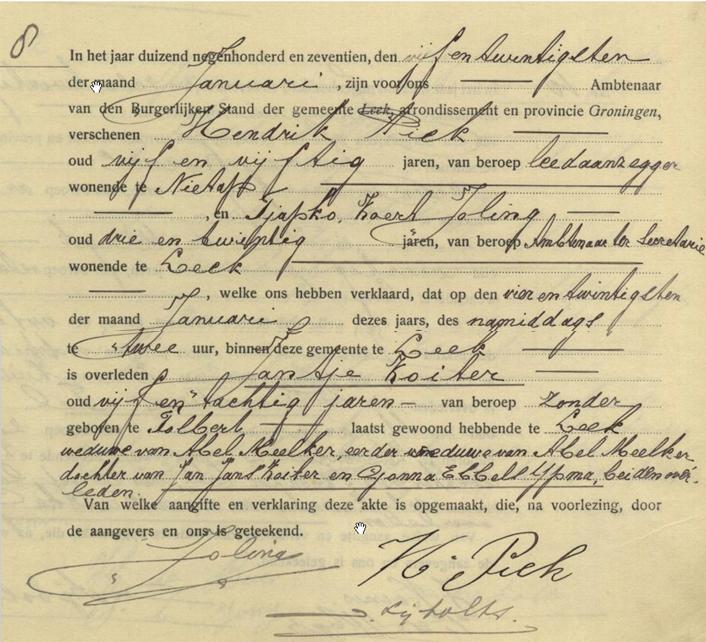 8
In het jaar duizend negenhonderd en zeventien, den vijf en twintigsten
der maand Januari, zijn voor ons Ambtenaar
van den Burgerlijken Stand der gemeente Leek, arrondissement en provincie Groningen,
verschenen Hendrik Piek
oud vijf en vijftig jaren, van beroep leedaanzegger
wonende te Nietap
, en Tjapko Koert Joling
oud drie en twintig jaren, van beroep Ambtenaar ter Secretarie
wonende te Leek
, welke ons hebben verklaard, dat op den vier en twintigsten
der maand Januari dezes jaars, des namiddags
te twee uur, binnen deze gemeente te Leek
is overleden Jantje Koiter
oud vijf en tachtig jaren van beroep zonder
geboren te Tolbert laatst gewoond hebbende te Leek
weduwe van Abel Meelker, eerder weduwe van Abel Meelker
dochter van Jan Jans Koiter en Ebbels Ypma, beiden over-
leden.
Van welke aangifte en verklaring deze akte is opgemaakt, die, na voorlezing, door
de aangevers en ons is geteekend.
Joling
H Piek